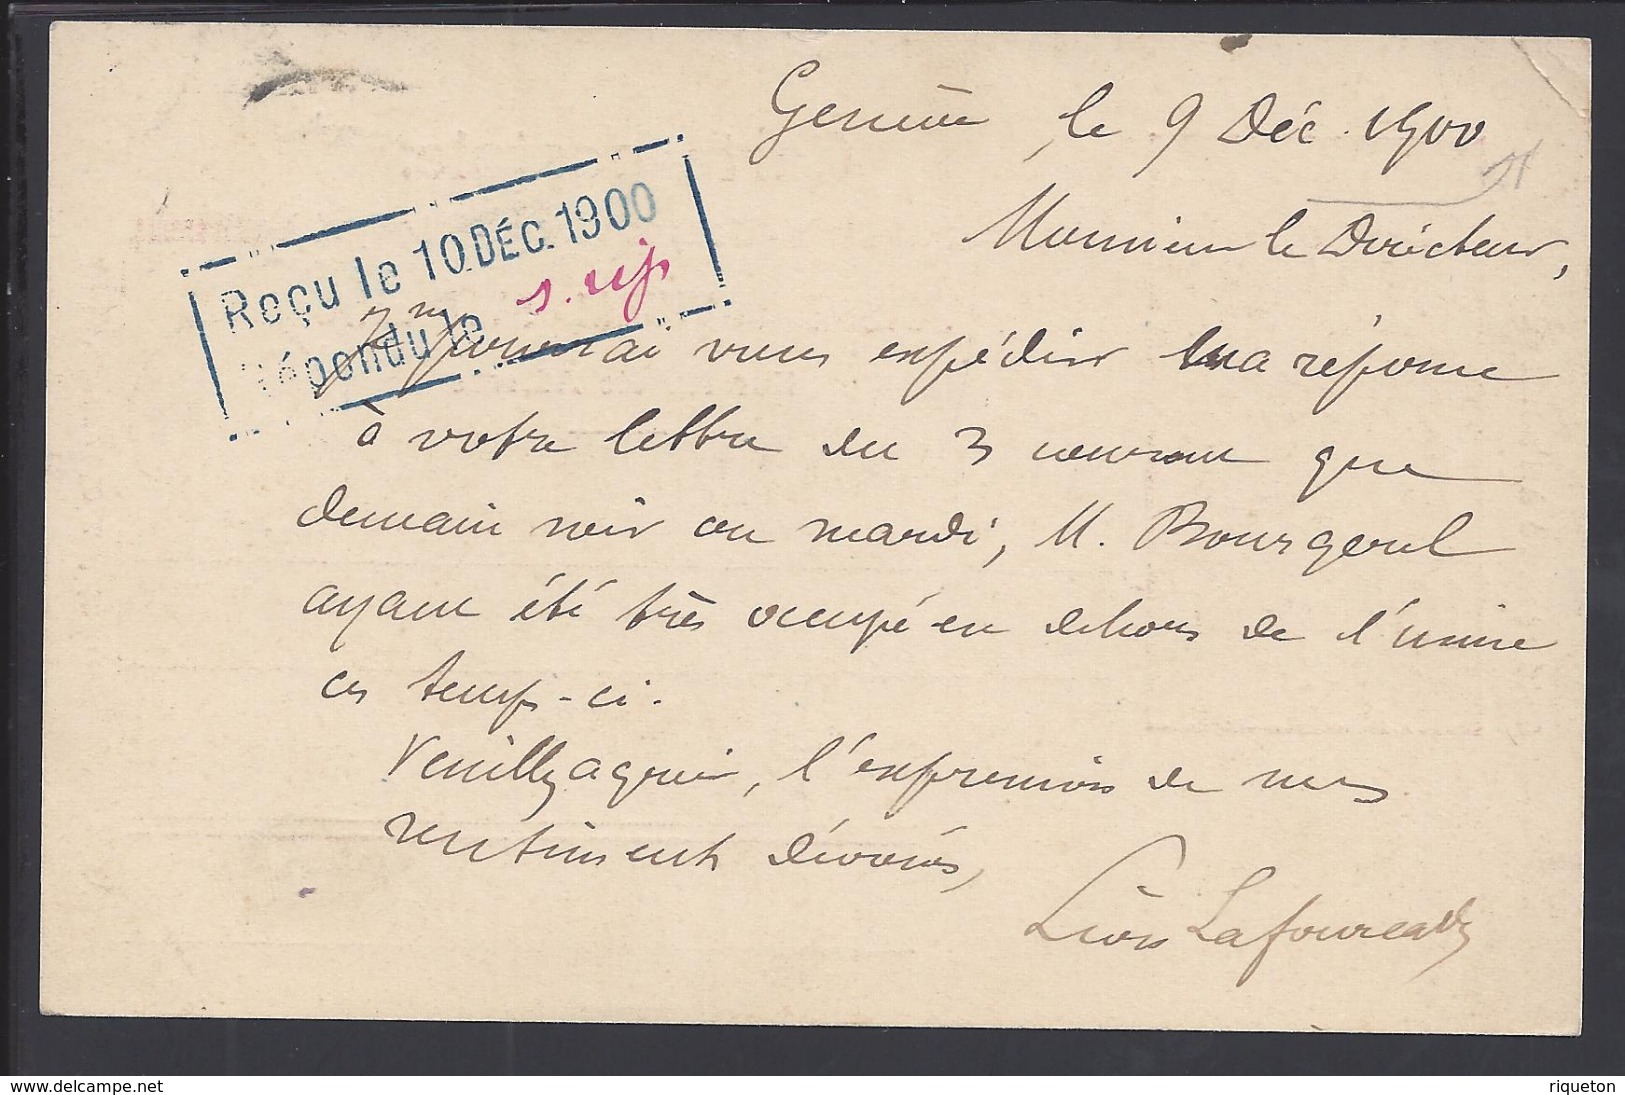 Genève, le 9 Déc. 1900
Monsieur le Directeur,
Reçu le 10 DÉC. 1900
Répondu le s. rép
Je ne pourrai vous expédier ma réponse
à votre lettre du 3 courant que
demain soir ou mardi, M. Bourgerel
ayant été très occupé en dehors de l'usine
ces temps-ci.
Veuillez agréer, l'expression de mes
sentiments dévoués,
Léon Lafourcade
www.delcampe.net
riqueton